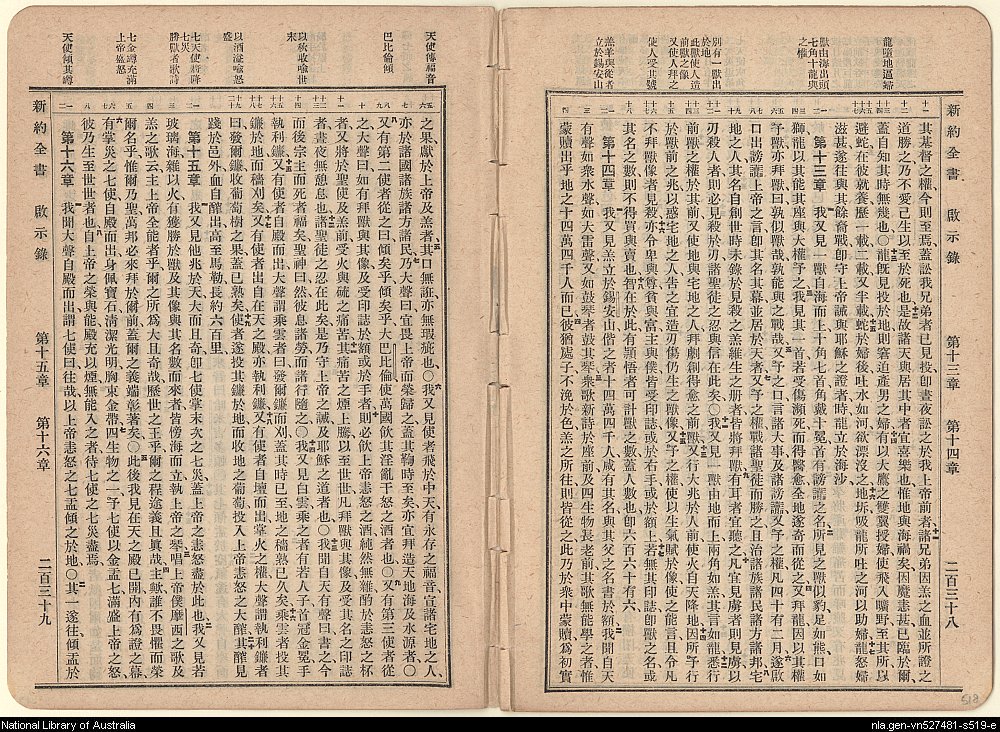 新約全書 啟示錄 第十三章 第十四章 二百三十八
龍墮地逼婦
獸由海出頭
七角十龍與
之權
別有一獸出
於地
此獸使人造
前獸之像
又使人拜之
使人受其號
羔羊與從者
立於錫安山
其基督之權今則至焉蓋訟我兄弟者已見投即晝夜訟之於我上帝前者諸兄弟因羔之血並所證之
道勝之乃不愛己生以至於死也是故諸天與居其中者宜喜樂也惟地與海禍矣因魔恚甚已臨於爾
蓋自知其時無幾也〇龍既見投於地則窘迫產男之婦有以大鷹之雙翼授婦使飛入曠野至其所以
避蛇在彼就養歷一載二載又半載蛇於婦後吐水如河欲漂沒之地坼吸龍所吐之河以助婦龍怒婦
滋甚遂往與其餘裔戰即守上帝誡與耶穌之證者時龍立於海沙
第十三章 我又見一獸自海而上十角七首角戴十冕首有謗讟之名所見之獸似豹足如熊口如
獅龍以其能其座與大權予之我見其一首若受傷瀕死而得醫愈全地遂奇而從之又拜龍因以其權
予獸亦拜獸曰孰似獸哉孰能與之戰哉又予之口言諸大事及諸謗讟又予之權凡四十有二月遂啟
口出謗讟上帝之言即其名其幕並居於天者又予之權戰諸聖徒而勝之且治諸族諸民諸方諸邦宅
地之人其名自創世時未錄於見殺之羔維生之册者皆將拜獸有耳者宜聽之凡宜見虜者則見虜以
刃殺人者則必見殺於刃諸聖徒之忍與信在此矣〇我又見一獸由地而上兩角如羔其言如龍悉行
前獸之權於其前又使地與宅地之人拜前獸劇創得愈之獸又行大兆於人前使火自天降地因所予行
於獸前之兆以惑宅地之人告之宜造刃傷仍生之獸像又予之權使以生氣賦於像使之能言且令凡
不拜獸像者見殺亦令卑與尊貧與富主與僕皆受印誌或於右手或於額上若無其印誌即獸之名或
其名之數則不得買與賣也智在於此有穎悟者可計獸之數蓋人數也即六百六十有六
第十四章 我又見羔立於錫安山偕之者十四萬四千人咸有其名與其父之名書於額我聞自天
有聲如衆水聲如大雷聲又如鼓琴者鼓其琴焉歌新詩於座前及四生物長老前其歌無能學之者惟
蒙贖出乎地之十四萬四千人而已彼猶處子不浼於色羔之所往則皆從之此乃於衆中蒙贖為初實
518
新約全書 啟示錄 第十五章 第十六章 二百三十九
天使傳福音
巴比倫傾
以秋收喻世
末
以酒醡喻怒
盛
七天使將降
七災
勝獸者歌詩
七金罇充滿
上帝盛怒
天使傾其罇
之果獻於上帝及羔者其口無誑亦無瑕疵也〇我又見使者飛於中天有永存之福音宣諸宅地之人
亦於諸國諸族諸方諸民乃大聲曰宜畏上帝而榮歸之蓋其鞫時至矣亦宜拜造天地海及水源者〇
又有第二使者從之曰傾矣乎傾矣乎大巴比倫使萬國飲其淫亂干怒之酒者也〇又有第三使者從
之大聲曰如有拜獸與其像及受印誌於額或於手者則必飲上帝恚怒之酒純然無雜酌於恚怒之杯
者又將於聖使及羔前受火與硫之痛苦其痛苦之煙上騰以至世世凡拜獸與其像及受其名之印誌
者晝夜無息息也諸聖徒之忍在此矣是乃守上帝之誡及耶穌之道者也〇我聞自天有聲曰書之今
而後宗主而死者福矣聖神曰然彼息諸勞而諸行隨之〇我又見白雲乘之者有若人子首冠金冕手
執利鐮又有使者自殿而出大聲謂乘雲者曰發爾鐮而刈蓋其時已至地之穡熟已久矣乘雲者投其
鐮於地而穡刈矣又有使者出自在天之殿亦執利鐮又有使者自壇而出掌火之權大聲謂執利鐮者
曰發爾鐮收葡萄樹之果蓋已熟矣使者遂投其鐮於地而收地之葡萄投入上帝恚怒之大醡其醡見
踐於邑外血自醡出高至馬勒長約六百里
第十五章 我又見他兆於天大而且奇即七使掌末次之七災蓋上帝之恚怒盡於此也我又見若
玻璃海雜以火有獲勝於獸及其像與其名數而來者皆傍海而立執上帝之琴唱上帝僕摩西之歌及
羔之歌云主上帝全能者乎爾之所為大且奇哉歷世之王乎爾之程途義且真哉主歟誰不畏懼而榮
爾名乎惟爾乃聖萬邦必來拜於爾前蓋爾之義端彰著矣〇此後我見在天之殿已開內有為證之幕
有掌災之七使自殿而出身佩寶石清潔光明胸束金帶四生物之一予七使以金盂七滿盛上帝之怒
彼乃生至世世者也自上帝之榮與能殿充以煙無能入之者待七使之七災盡焉
第十六章 我聞大聲自殿而出謂七使曰往哉以上帝恚怒之七盂傾之於地〇其一遂往傾盂於
National Library of Australia
nla.gen-vn527481-s519-e